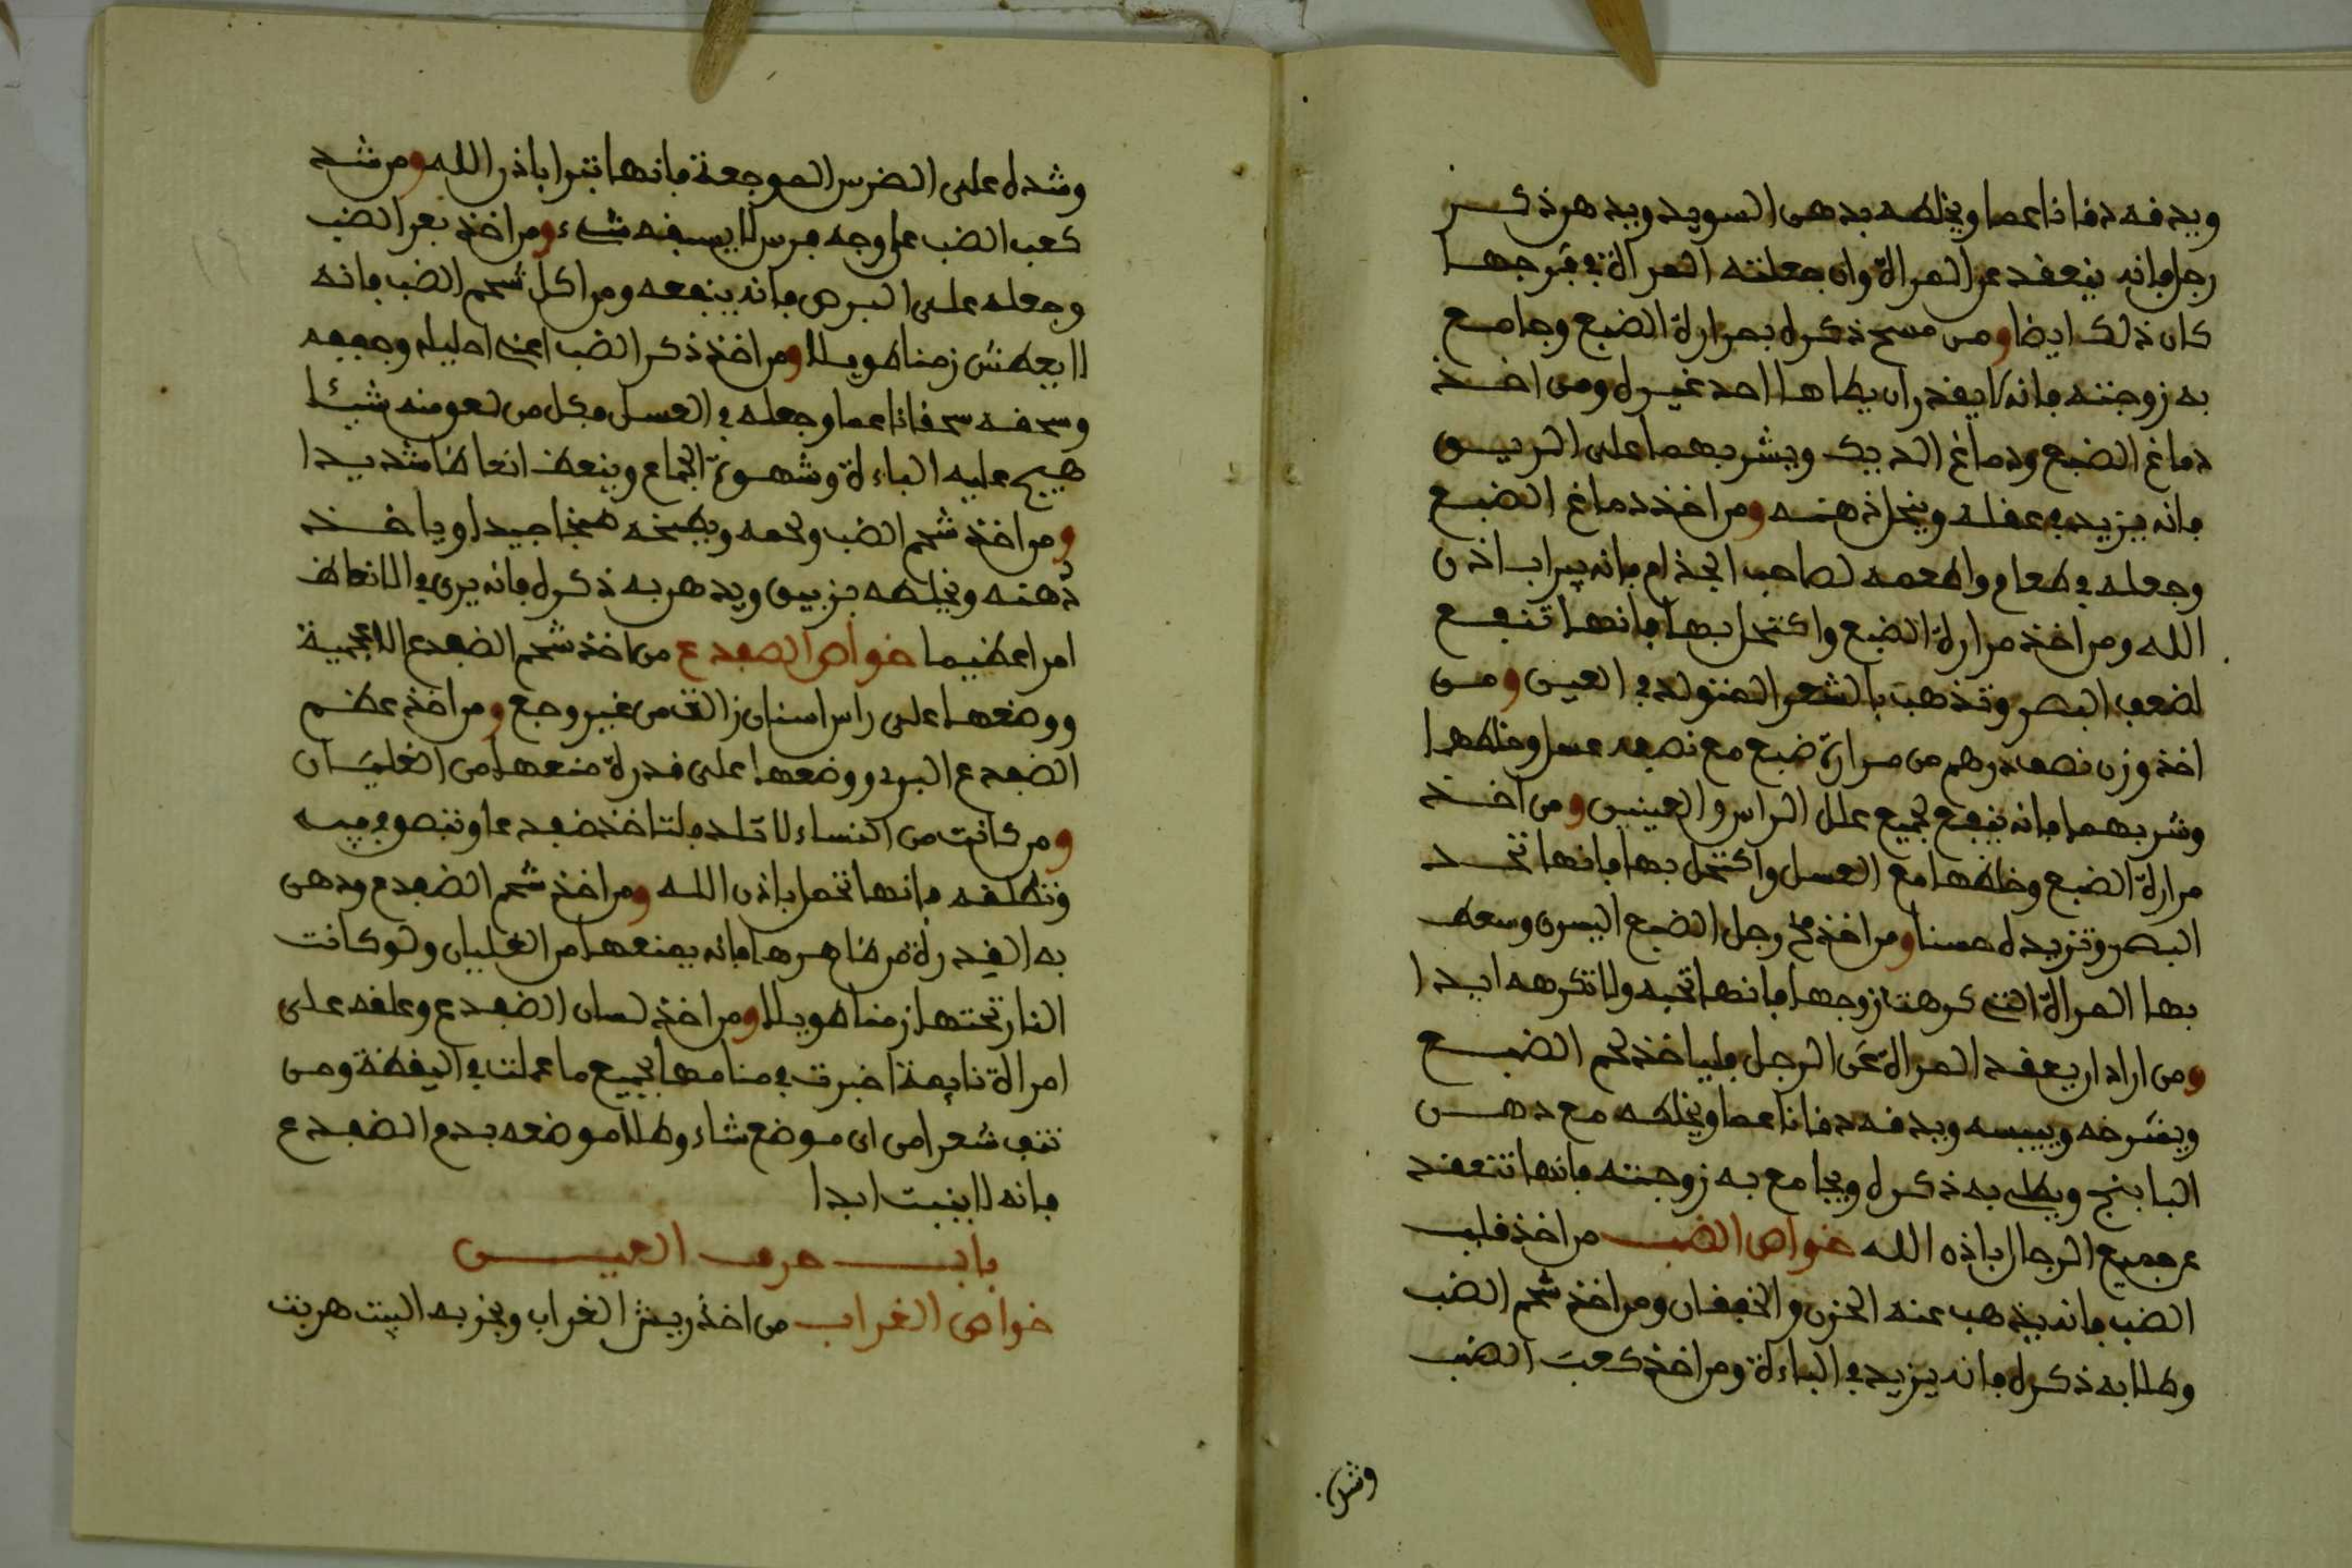 ويدفه دفا ناعما ويخلطه بدهن السويد ويدهن ذكر
رجل فإنه ينعقد عن المراة وان جعلته المراة في فرجها
كان ذلك ايضا ومن مسح ذكره بمرارة الضبع وجامع
به زوجته فانه لا يقدر ان يطاها احد غيره ومن اخذ
دماغ الضبع ودماغ الديك ويشربهما على الريق
فانه يزيد في عقله وينحل ذهنه ومن اخذ دماغ الضبع
وجعله في طعام واطعمه لصاحب الجذام فانه يبرا باذن
الله ومن اخذ مرارة الضبع واكتحل بها فانها تنفع
لضعف البصر وتذهب بالشعر المتولد في العين ومن
اخذ وزن نصف درهم من مرارة ضبع مع نصفه عسل وخلطهما
وشربهما فانه ينفع لجميع علل الراس والعينين ومن اخذ
مرارة الضبع وخلطها مع العسل واكتحل بها فانها تحد
البصر وتزيده حسنا ومن اخذ مخ رجل الضبع اليسرى وسعط
بها المراة التي كرهت زوجها فانها تحبه ولا تكرهه ابدا
ومن اراد ان يعقد المراة عن الرجل فلياخذ لحم الضبع
ويشرحه وييبسه ويدفه دفا ناعما ويخلطه مع دهن
البابنج ويطلي به ذكره ويجامع به زوجته فانها تنعقد
عن جميع الرجال باذن الله خواص الضب من اخذ قلب
الضب فانه يذهب عنه الحزن والخفقان ومن اخذ شحم الضب
وطلا به ذكره فانه يزيد في الباءة ومن اخذ كعب الضب
وشده
وشده على الضرس الموجعة فانها تبرا باذن الله ومن شد
كعب الضب على وجه فرس لا يسبقه شيء ومن اخذ بعر الضب
وجعله على البرص فانه ينفعه ومن اكل شحم الضب فانه
لا يعطش زمنا طويلا ومن اخذ ذكر الضب اعني احليله وجففه
وسحقه سحقا ناعما وجعله في العسل فكل من لعق منه شيئا
هيج عليه الباءة وشهوة الجماع وينعظ انعاظا شديدا
ومن اخذ شحم الضب ولحمه ويطبخه طبخا جيدا وياخذ
دهنه ويخلطه بزيبق ويدهن به ذكره فانه يرى في الانعاظ
امرا عظيما خواص الضفدع من اخذ شحم الضفدع الاجمية
ووضعها على راس اسنان زالت من غير وجع ومن اخذ عظم
الضفدع البري ووضعها على قدرة منعها من الغليان
ومن كانت من النساء لا تلد فلتاخذ ضفدعا وتبصق في فيه
وتطلقه فانها تحمل باذن الله ومن اخذ شحم الضفدع ودهن
به القدرة من ظاهرها فانه يمنعها من الغليان ولو كانت
النار تحتها زمنا طويلا ومن اخذ لسان الضفدع وعلقه على
امراة نايمة اخبرت في منامها بجميع ما عملت في اليقظة ومن
نتف شعرا من اي موضع شاء وطلا موضعه بدم الضفدع
فانه لا ينبت ابدا
باب حرف العين
خواص الغراب من اخذ ريش الغراب وبخر به البيت هربت